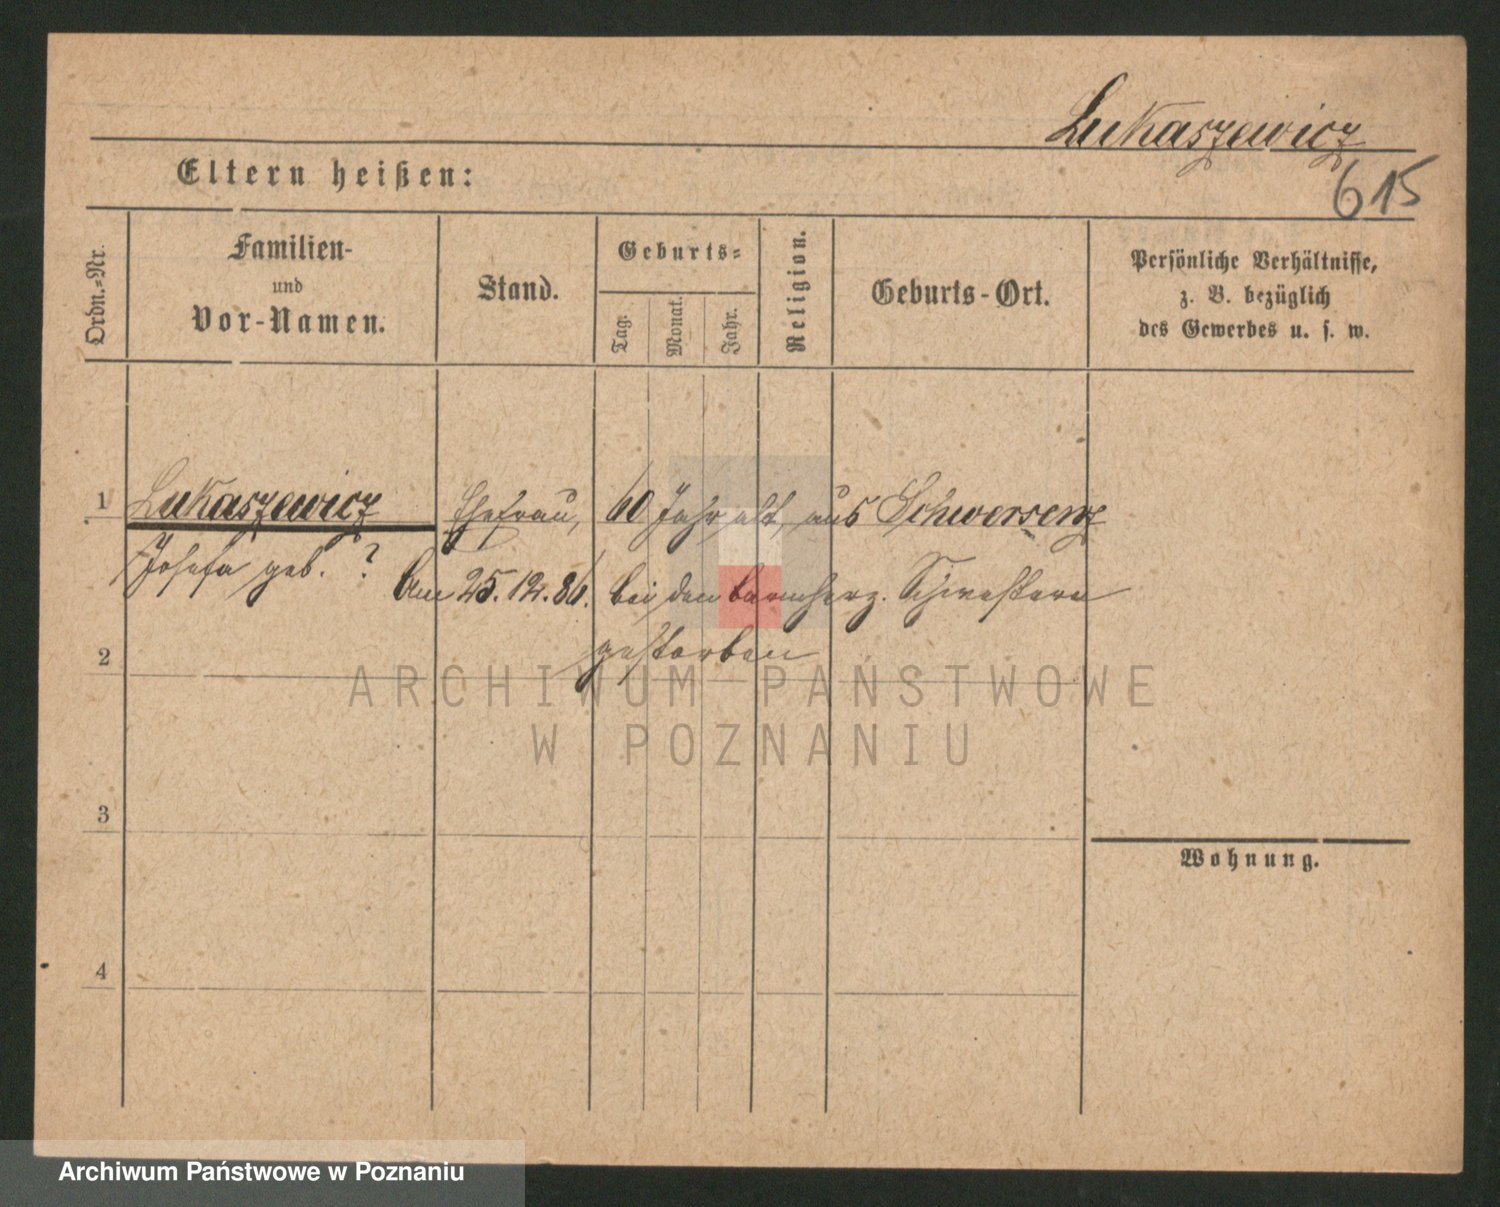 Lukaszewicz
615
Eltern heißen:
Ordn.-Nr.
Familien-
und
Vor-Namen.
Stand.
Geburts-
Tag.
Monat.
Jahr.
Religion.
Geburts-Ort.
Persönliche Verhältnisse,
z. B. bezüglich
des Gewerbes u. s. w.
1 Lukaszewicz Ehefrau, 60 Jahr alt, aus Schwersenz
Josefa geb. ?
Am 25.12.86. bei den barmherz. Schwestern
gestorben
2
ARCHIWUM PAŃSTWOWE
W POZNANIU
3
Wohnung.
4
Archiwum Państwowe w Poznaniu